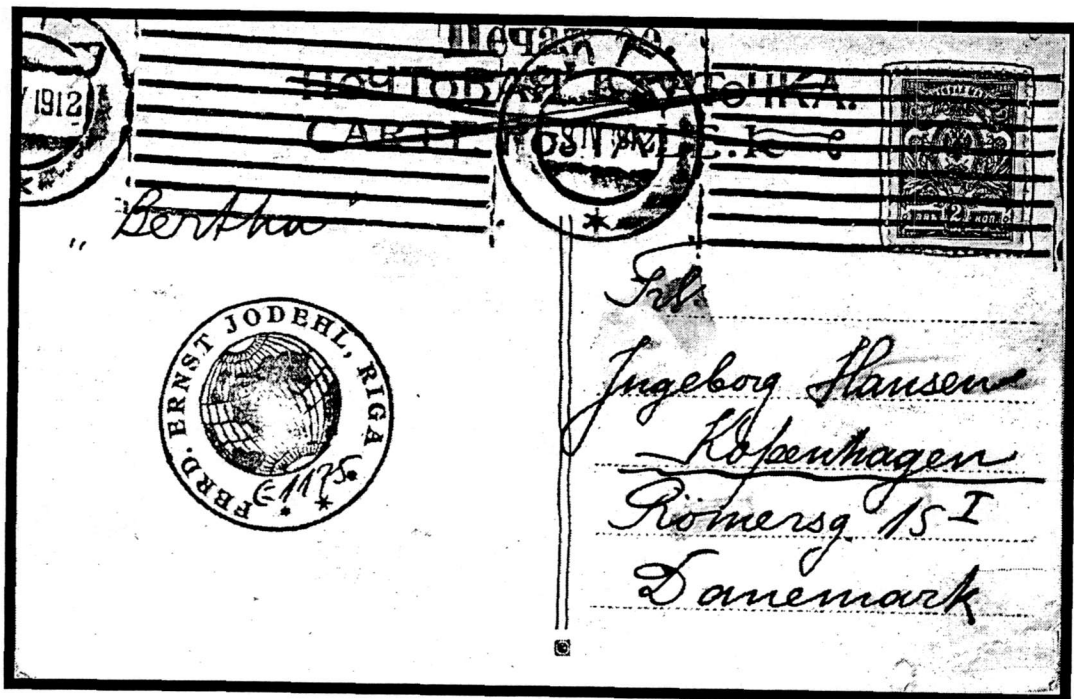 Печатное.
ПОЧТОВАЯ КАРТОЧКА.
CARTE POSTALE.
1912
„Bertha"
FERD. ERNST JODEHL, RIGA
E1175
2 КОП.
Frl.
Ingeborg Hansen
Kopenhagen
Römersg 15 I
Danemark